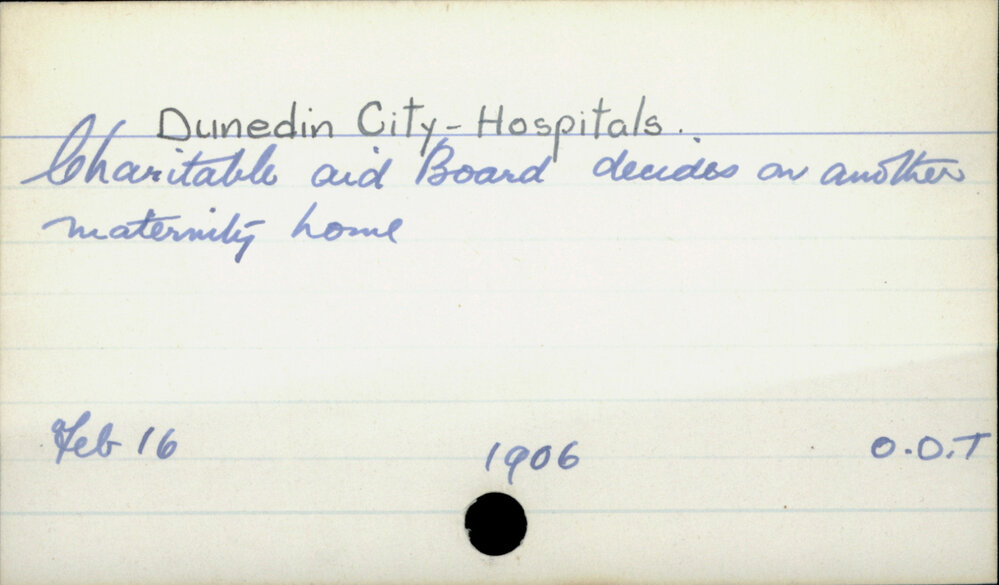 Dunedin City - Hospitals.
Charitable aid Board decides on another
maternity home
Feb 16 1906 O.D.T